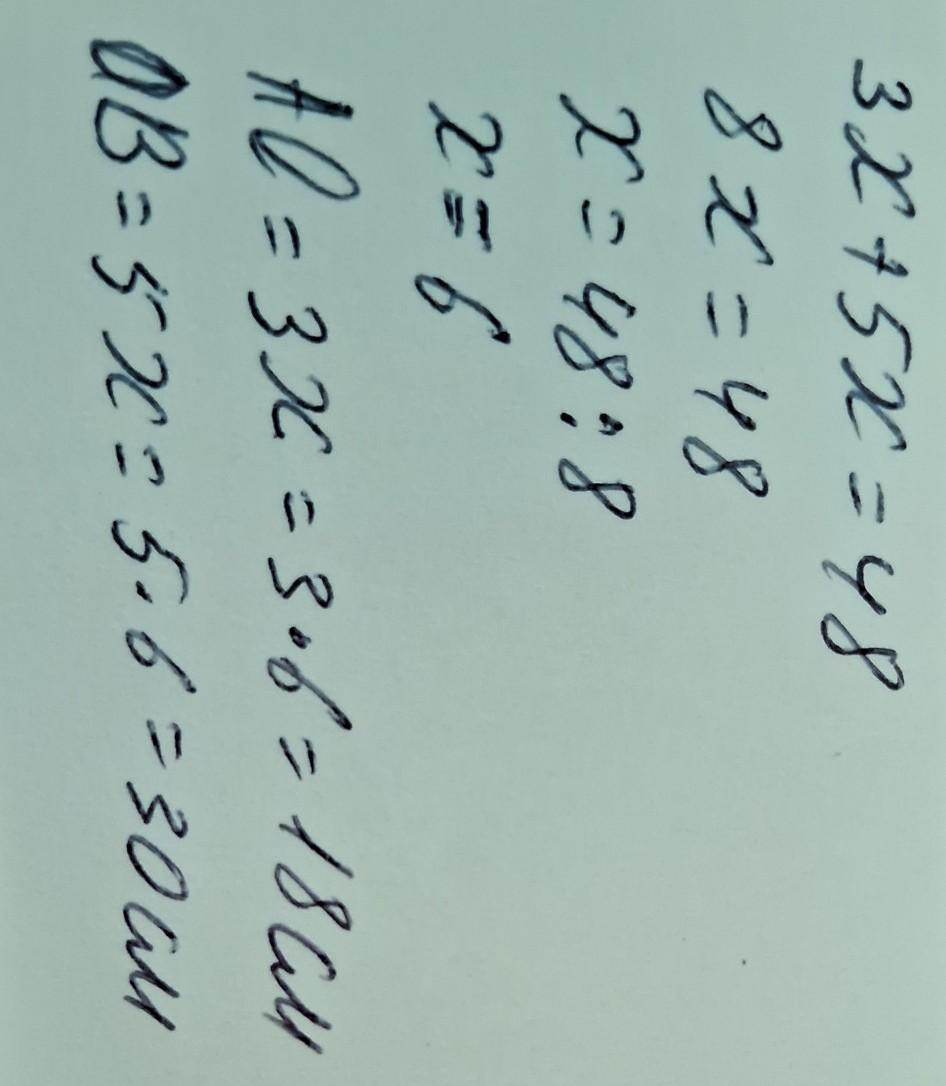 3x+5x=48
8x=48
x=48:8
x=6
AO=3x=3·6=18см
OB=5x=5·6=30см